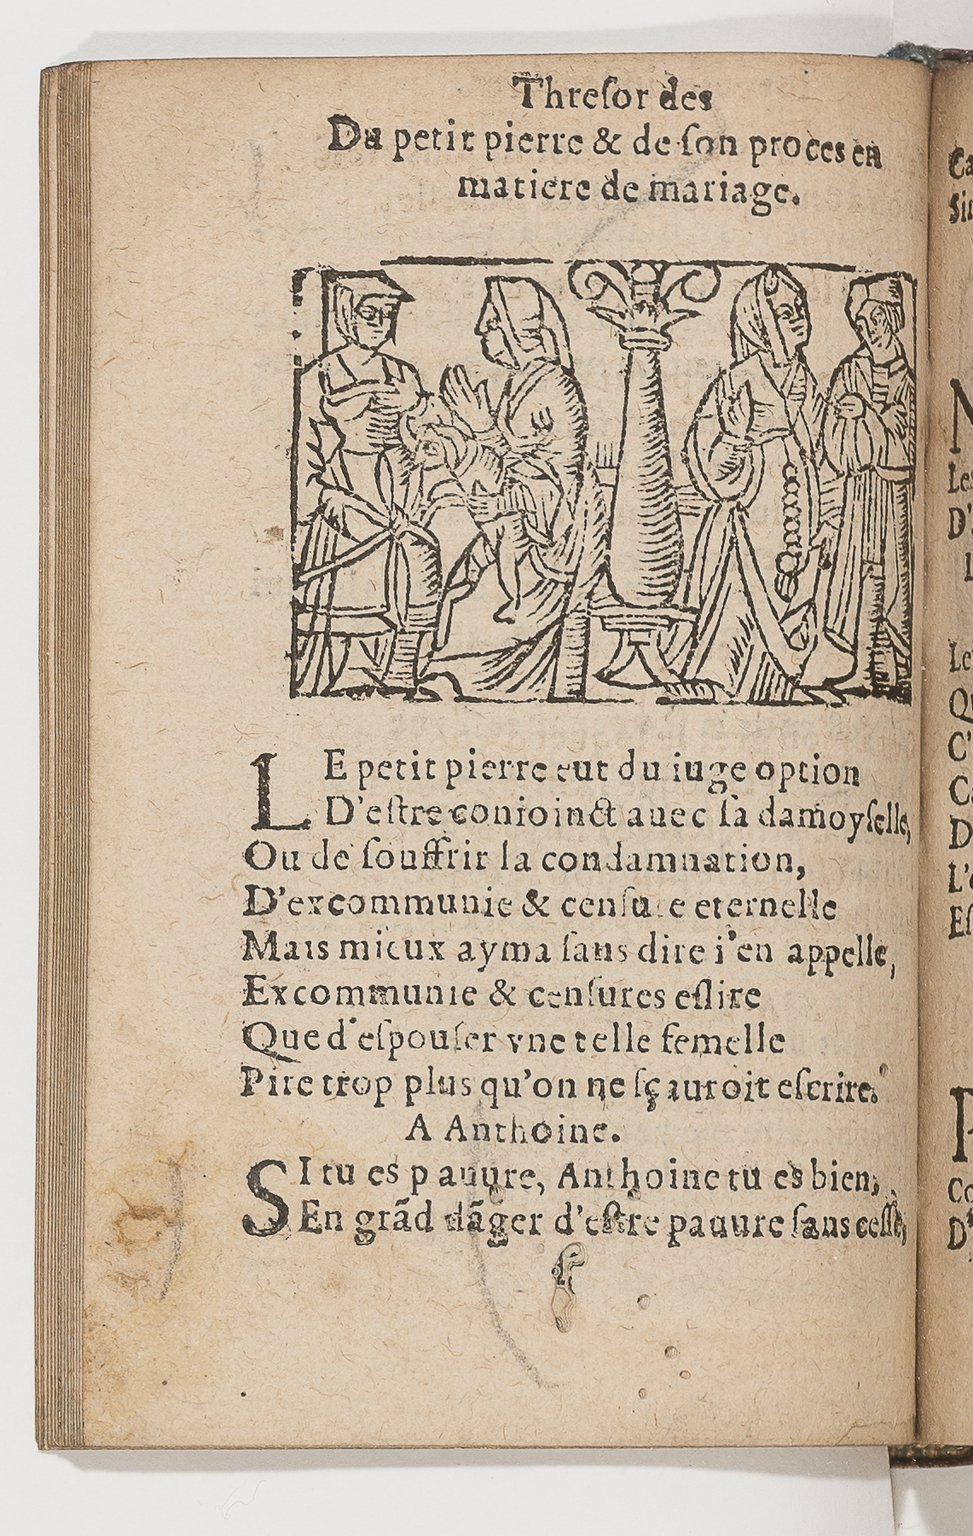 Threſor des
Du petit pierre & de ſon proces en
matiere de mariage.
LE petit pierre eut du iuge option
D'eſtre conioinct auec ſa damoyſelle,
Ou de ſouffrir la condamnation,
D'excommunie & cenſure eternelle
Mais mieux ayma ſans dire i'en appelle,
Excommunie & cenſures eſlire
Que d'eſpouſer vne telle femelle
Pire trop plus qu'on ne ſçauroit eſcrire.
A Anthoine.
SI tu es pauure, Anthoine tu es bien,
En grãd dãger d'eſtre pauure ſans ceſſe,
Ca
Le
D'
Le
Qu
C'
Ca
D
L'
Eſ
Co
D'